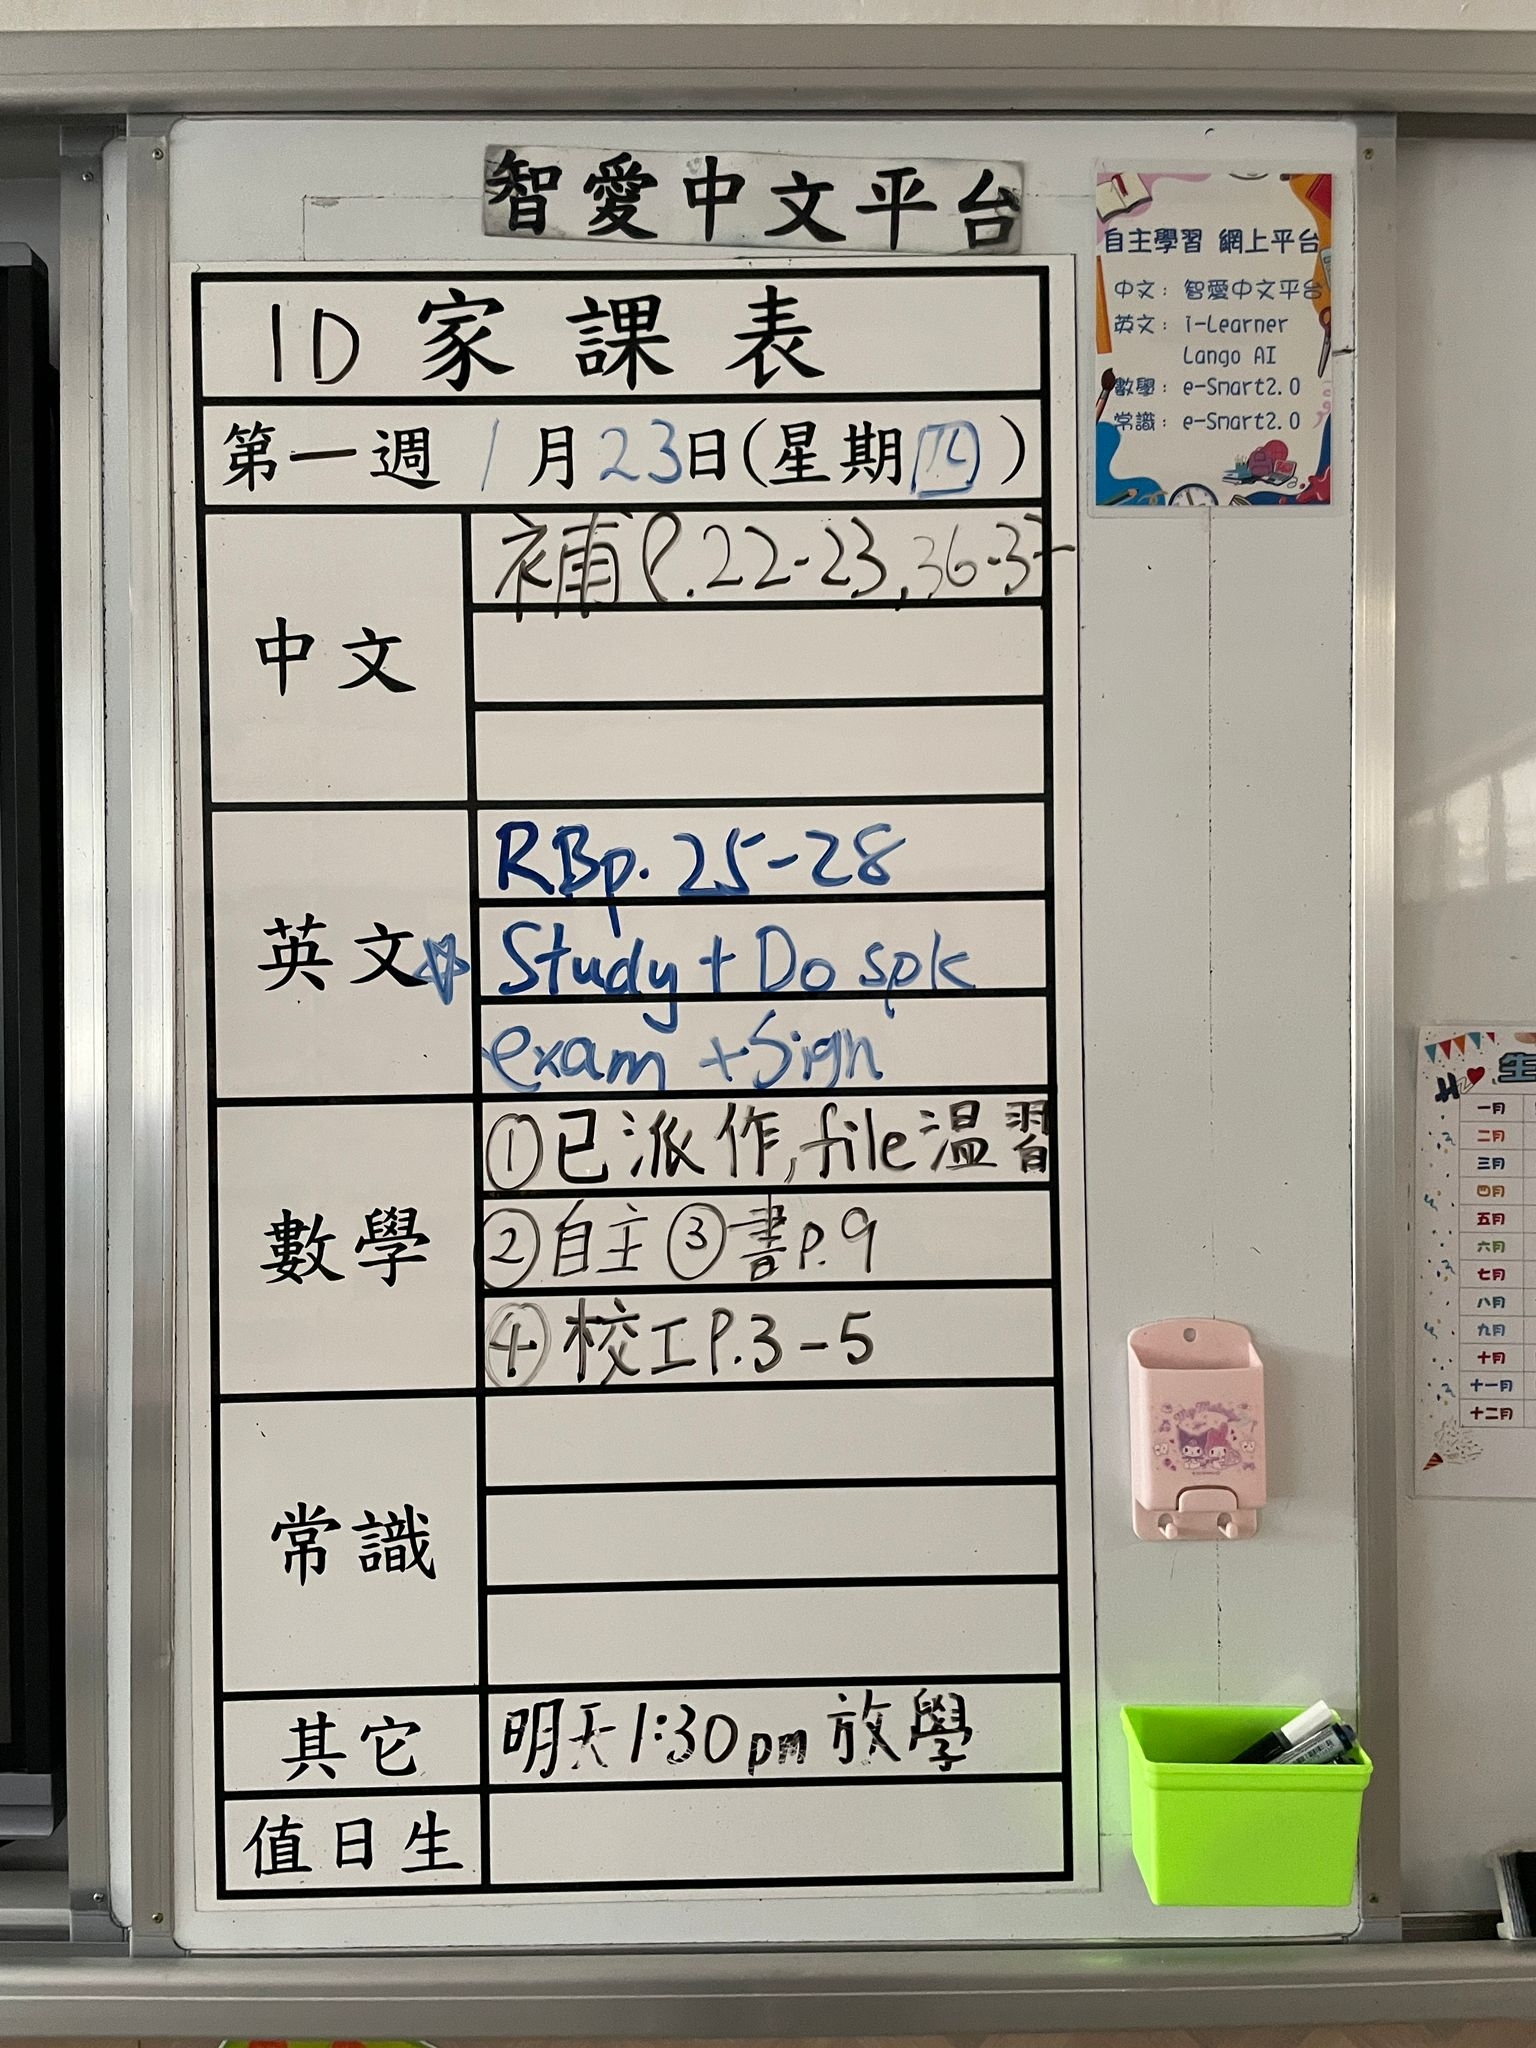 智愛中文平台
1D 家課表
第一週 1月23日(星期四)
中文
補P.22-23,36-37
英文☆
RBp. 25-28
Study + Do spk
exam + Sign
數學
①已派作,file溫習
②自主 ③書P.9
④校工P.3-5
常識
其它
明天1:30pm放學
值日生
自主學習 網上平台
中文：智愛中文平台
英文：i-Learner
Lango AI
數學：e-Smart2.0
常識：e-Smart2.0
生
一月
二月
三月
四月
五月
六月
七月
八月
九月
十月
十一月
十二月